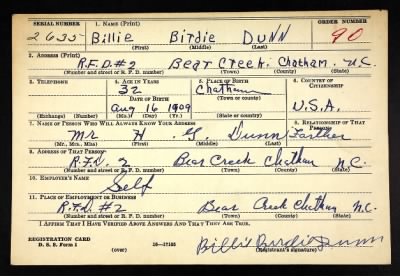 SERIAL NUMBER 1. NAME (Print) ORDER NUMBER
2635 Billie Birdie DUNN 90
(First) (Middle) (Last)
2. ADDRESS (Print)
R.F.D.#2 Bear Creek. Chatham. N.C.
(Number and street or R. F. D. number) (Town) (County) (State)
3. TELEPHONE 4. AGE IN YEARS 5. PLACE OF BIRTH 6. COUNTRY OF CITIZENSHIP
32 Chatham
DATE OF BIRTH (Town or county)
Aug 16 1909 U.S.A.
(Exchange) (Number) (Mo.) (Day) (Yr.) (State or country)
7. NAME OF PERSON WHO WILL ALWAYS KNOW YOUR ADDRESS 8. RELATIONSHIP OF THAT PERSON
Mr H. G. Dunn Farther
(Mr., Mrs., Miss) (First) (Middle) (Last)
9. ADDRESS OF THAT PERSON
R.F.D. 2 Bear Creek Chatham N.C.
(Number and street or R. F. D. number) (Town) (County) (State)
10. EMPLOYER'S NAME
Self
11. PLACE OF EMPLOYMENT OR BUSINESS
R.F.D. #2 Bear Creek Chatham N.C.
(Number and street or R. F. D. number) (Town) (County) (State)
I AFFIRM THAT I HAVE VERIFIED ABOVE ANSWERS AND THAT THEY ARE TRUE.
REGISTRATION CARD
D. S. S. Form 1 (over) 16—17105 Billie Birdie Dunn
(Registrant's signature)